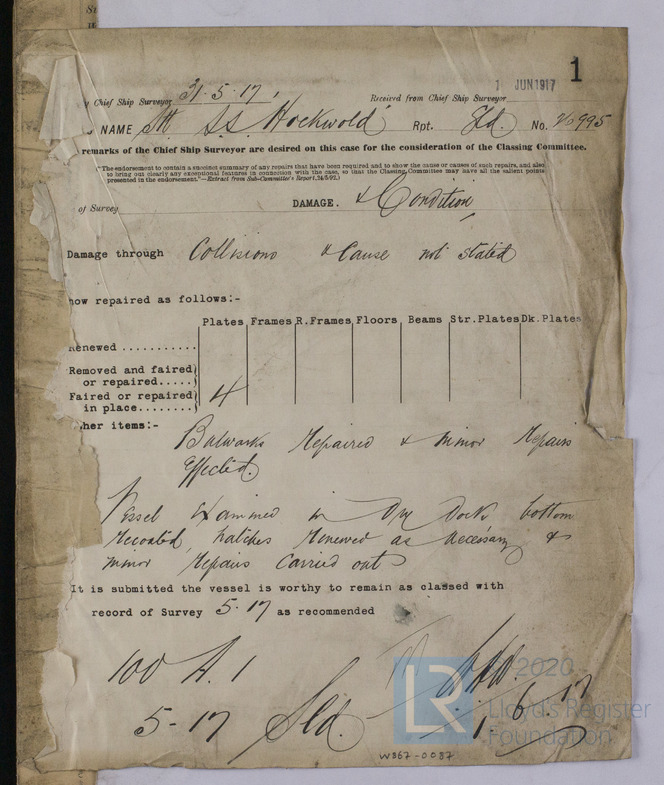 1
Chief Ship Surveyor 31.5.17. Received from Chief Ship Surveyor 1 JUN 1917
NAME SS Hockwold Rpt. Sld. No. 26995
remarks of the Chief Ship Surveyor are desired on this case for the consideration of the Classing Committee.
"The endorsement to contain a succinct summary of any repairs that have been required and to show the cause or causes of such repairs, and also
to bring out clearly any exceptional features in connection with the case, so that the Classing Committee may have all the salient points
presented in the endorsement."—Extract from Sub-Committee's Report, 24/5/92.)
of Survey DAMAGE. & Condition
Damage through Collisions & Cause not stated
now repaired as follows:-
Plates Frames R.Frames Floors Beams Str.Plates Dk.Plates
Renewed ...........
Removed and faired
or repaired.....
Faired or repaired 4
in place........
her items:-
Bulwarks repaired & minor repairs
effected.
Vessel examined in Dry Dock, bottom
recoated, hatches renewed as necessary &
minor repairs carried out
It is submitted the vessel is worthy to remain as classed with
record of Survey 5.17 as recommended
100 A.1
5-17 Sld.
1.6.17
W867-0087
LR
© 2020
Lloyd's Register
Foundation